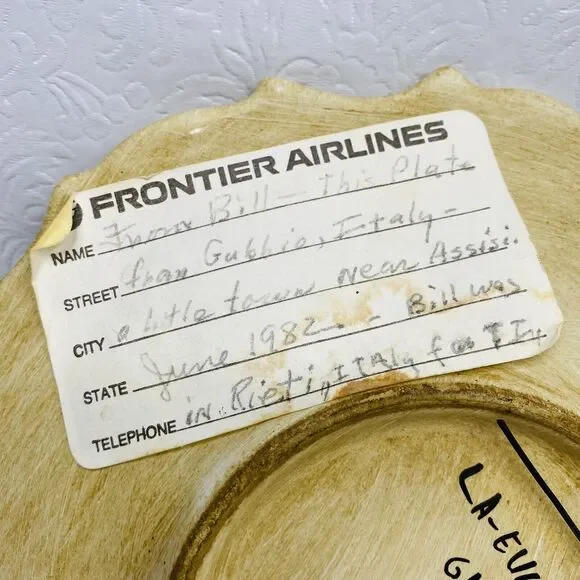 FRONTIER AIRLINES
NAME From Bill — This Plate
STREET from Gubbio, Italy -
CITY a little town near Assisi.
STATE June 1982 - Bill was
TELEPHONE in Rieti, Italy for T I.
LA-EU
G